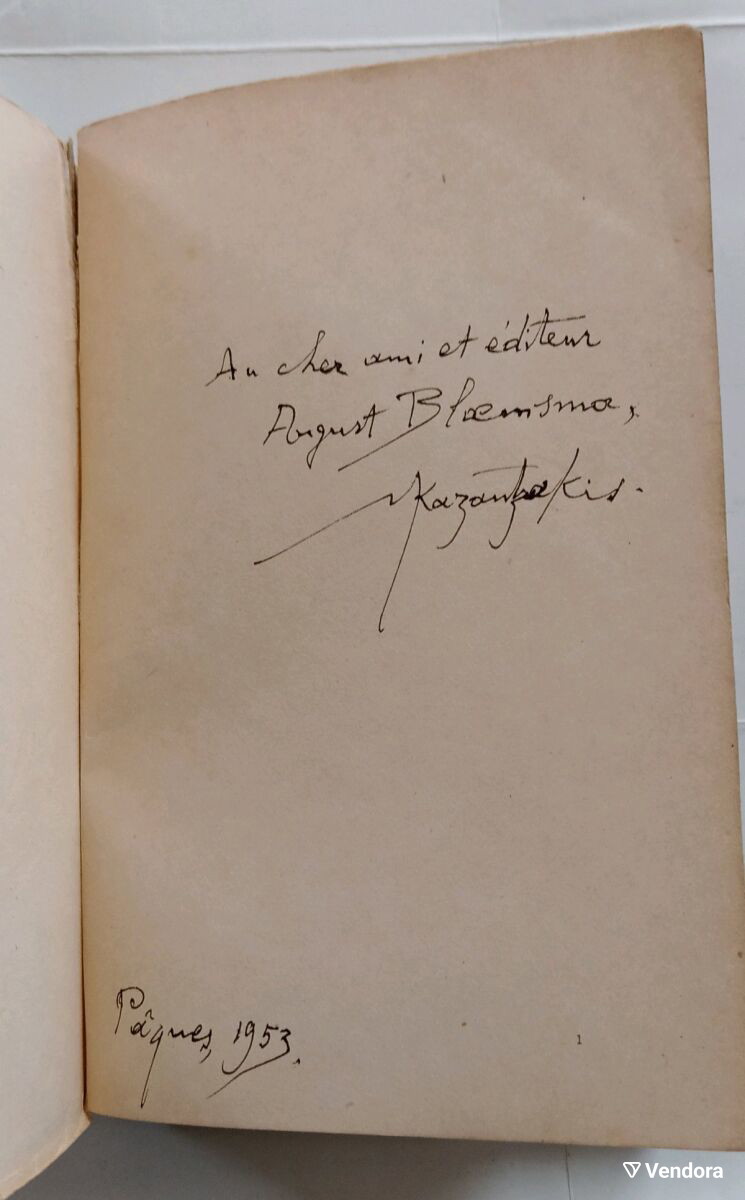 Au cher ami et éditeur
August Blaemsma,
Kazantzakis.
Pâques, 1953.
1
Vendora